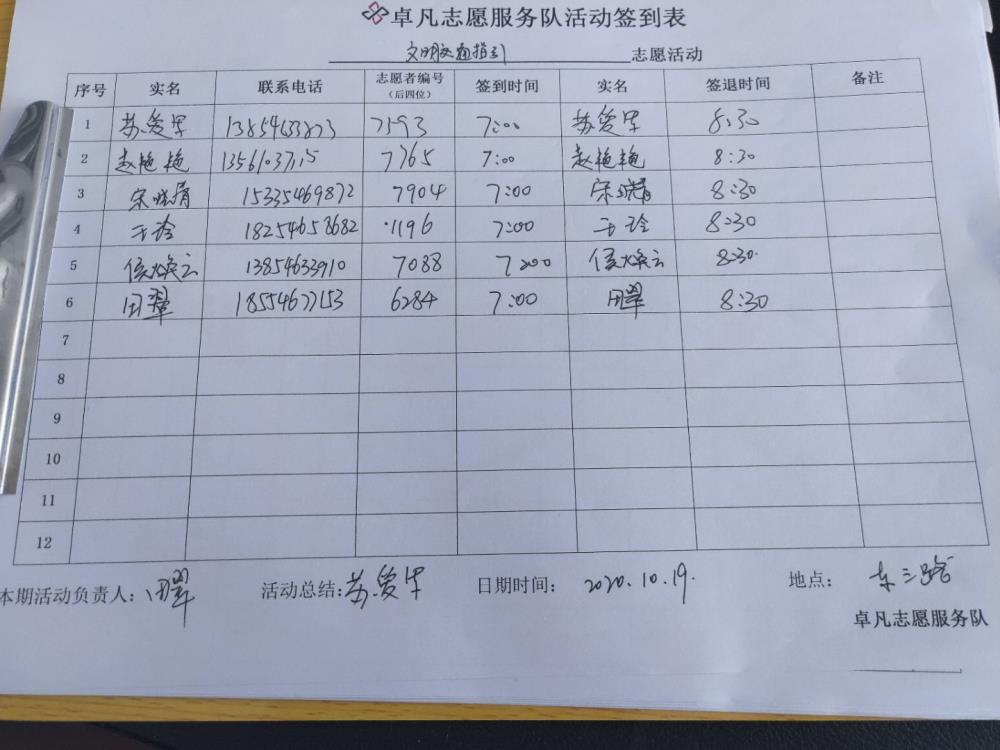 卓凡志愿服务队活动签到表
文明交通指引 志愿活动
序号 实名 联系电话 志愿者编号（后四位） 签到时间 实名 签退时间 备注
1 苏爱军 7593 7:00 苏爱军 8:30
2 赵艳艳 7765 7:00 赵艳艳 8:30
3 宋晓娟 15335469872 7904 7:00 宋晓娟 8:30
4 于玲 18254658682 1196 7:00 于玲 8:30
5 侯焕云 13854633910 7088 7:00 侯焕云 8:30
6 田翠 18554677153 6284 7:00 田翠 8:30
7
8
9
10
11
12
本期活动负责人：田翠 活动总结：苏爱军 日期时间： 2020.10.19. 地点： 东三路
卓凡志愿服务队